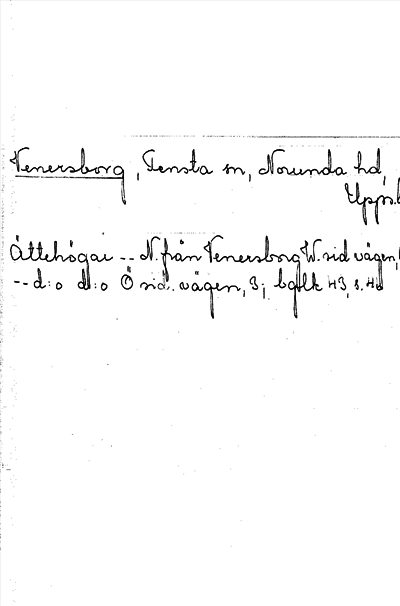 Venersborg, Tensta sn, Norunda hd,
Upps.l
Ättehögar -- N. från Venersborg W. sid vägen,
-- d:o d:o Ö sid. vägen, 3; bglk 43, s. 42